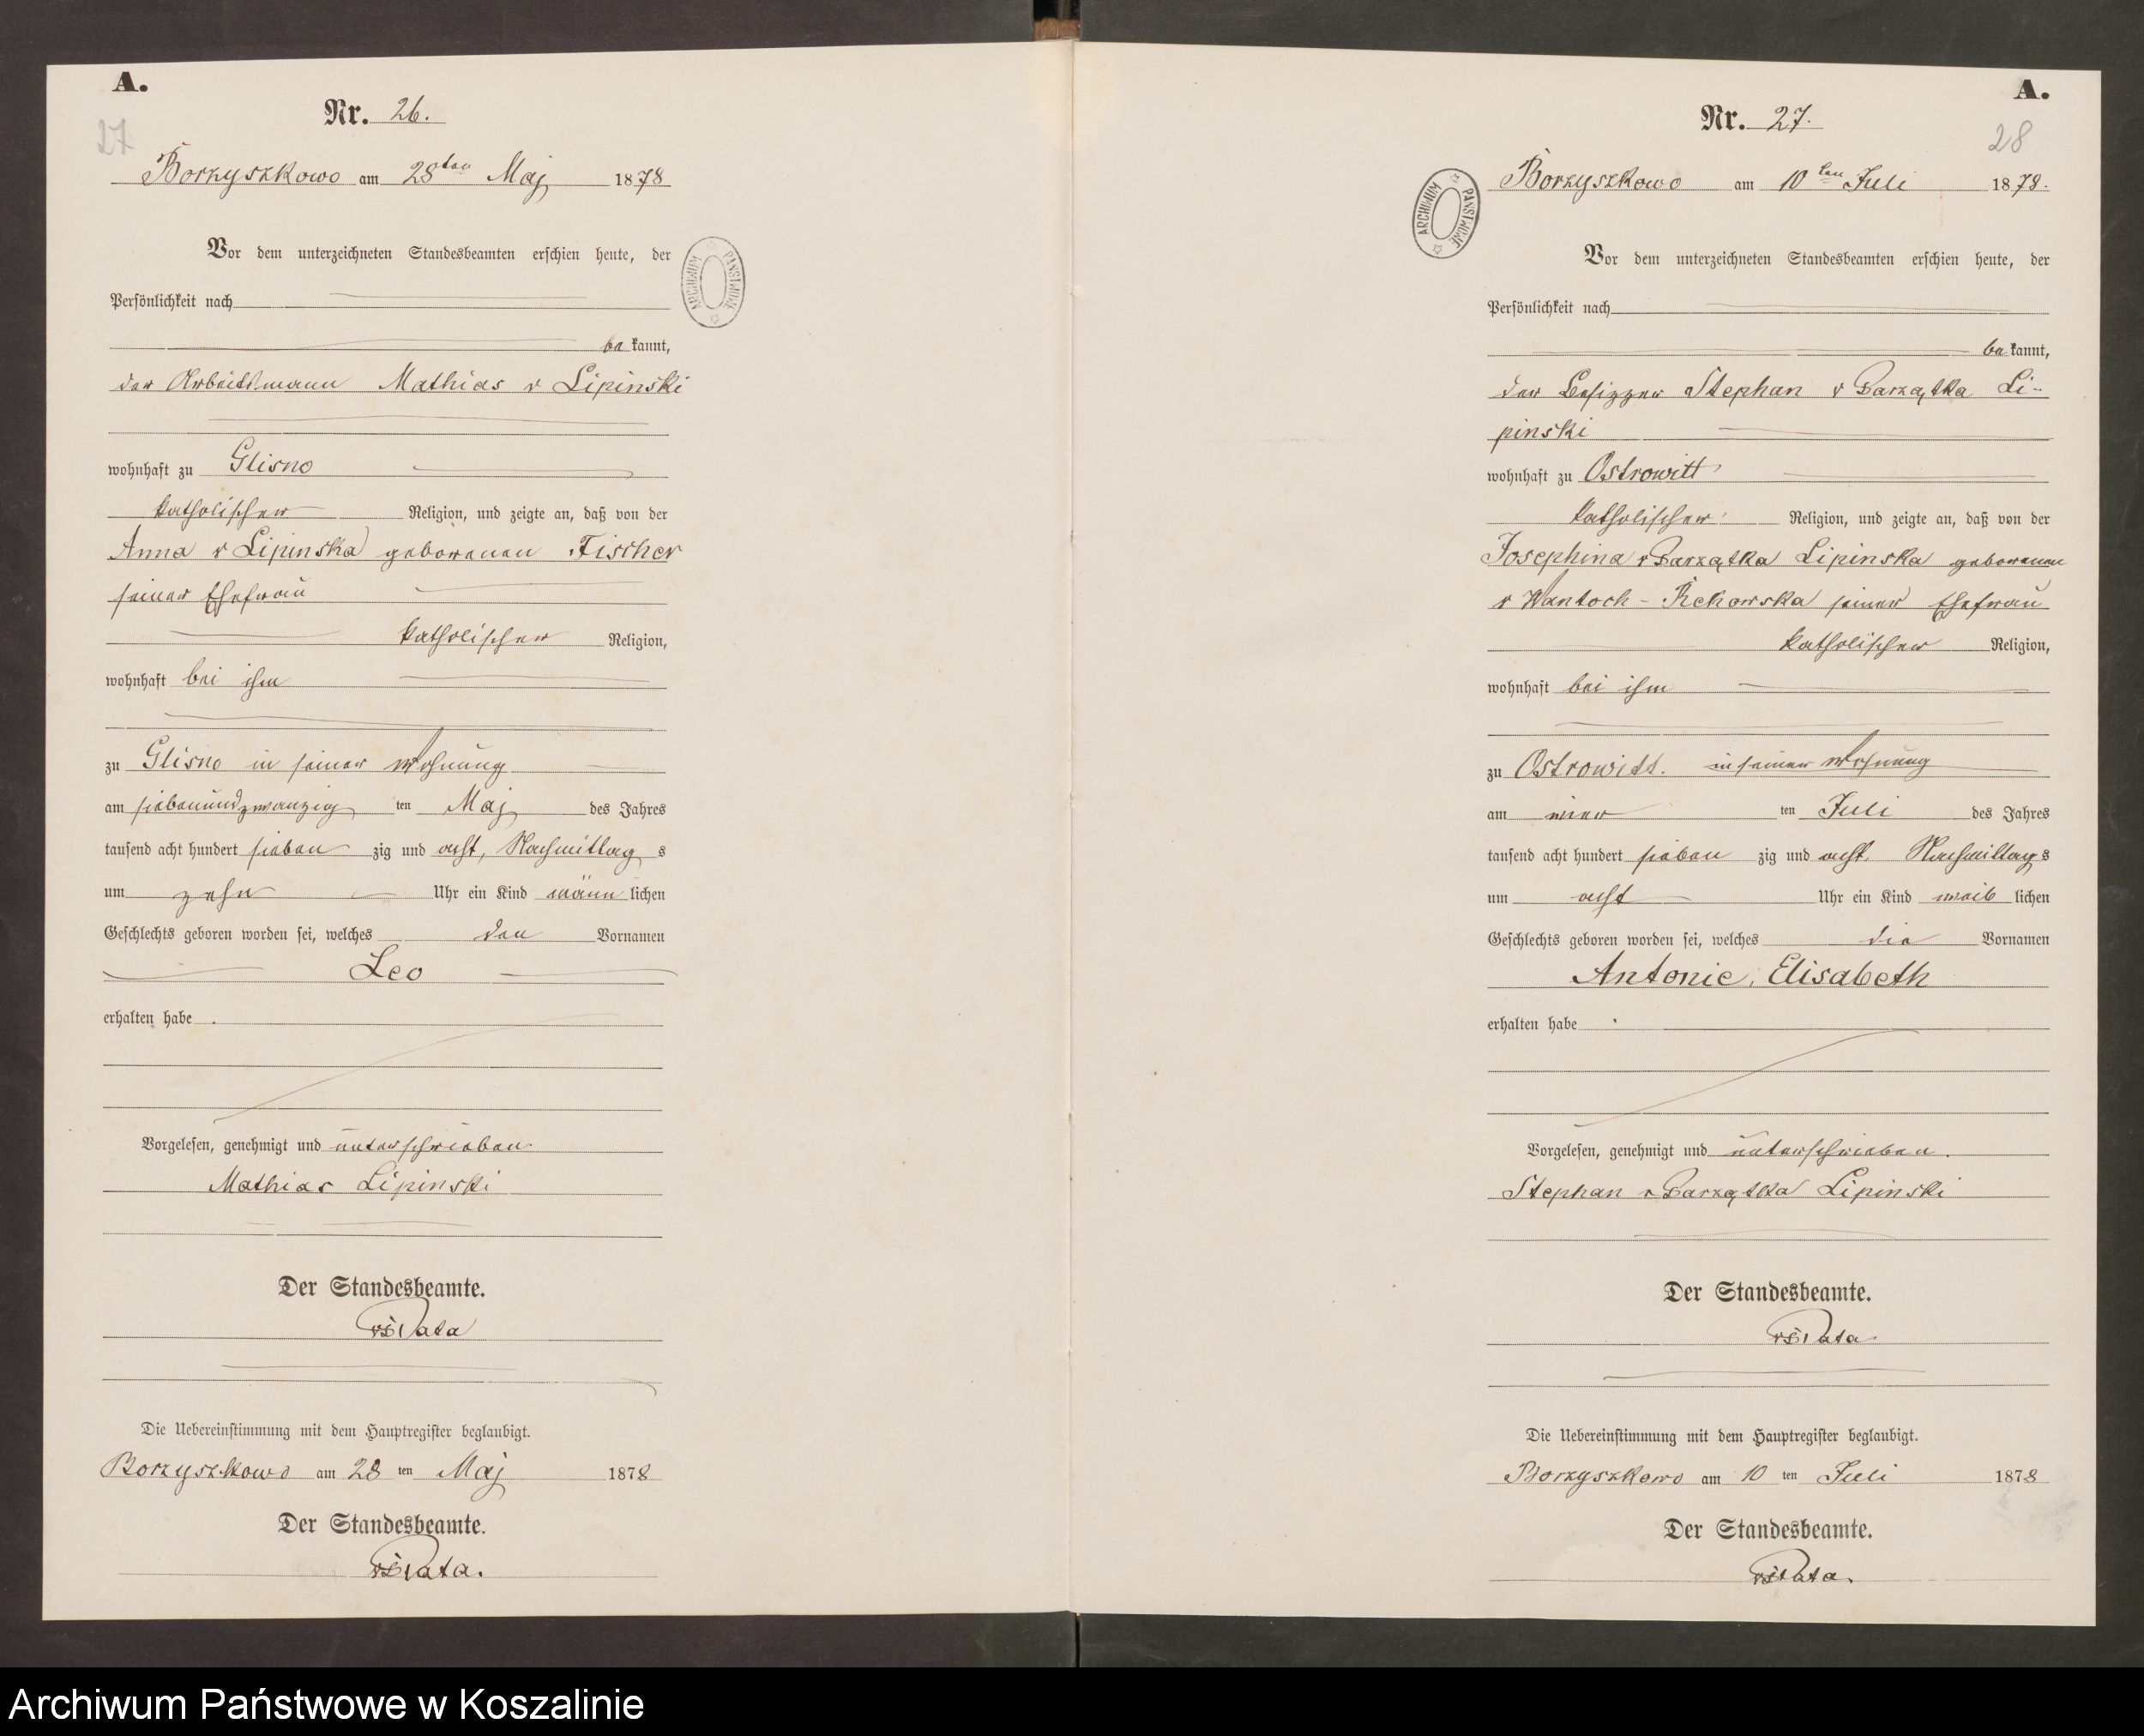 A.
Nr. 26.
27
Borzyszkowo am 28ten Maj 1878
Vor dem unterzeichneten Standesbeamten erschien heute, der
Persönlichkeit nach
bekannt,
der Arbeitsmann Mathias v Lipinski
wohnhaft zu Glisno
katholischer Religion, und zeigte an, daß von der
Anna v Lipinska geborenen Fischer
seiner Ehefrau
katholischer Religion,
wohnhaft bei ihm
zu Glisno in seiner Wohnung
am siebenundzwanzig ten Maj des Jahres
tausend acht hundert sieben zig und acht, Nachmittag s
um zehn Uhr ein Kind männ lichen
Geschlechts geboren worden sei, welches den Vornamen
Leo
erhalten habe.
Vorgelesen, genehmigt und unterschrieben
Mathias Lipinski
Der Standesbeamte.
Die Uebereinstimmung mit dem Hauptregister beglaubigt.
Borzyszkowo am 28 ten Maj 1878
Der Standesbeamte.
ARCHIWUM PAŃSTWOWE
A.
Nr. 27.
28
Borzyszkowo am 10ten Juli 1878.
Vor dem unterzeichneten Standesbeamten erschien heute, der
Persönlichkeit nach
bekannt,
der Besizzer Stephan v Parzątka Li-
pinski
wohnhaft zu Ostrowitt
katholischer Religion, und zeigte an, daß von der
Josephina v Parzątka Lipinska geborenen
v Wantoch-Rekowska seiner Ehefrau
katholischer Religion,
wohnhaft bei ihm
zu Ostrowitt. in seiner Wohnung
am vier ten Juli des Jahres
tausend acht hundert sieben zig und acht, Nachmittag s
um acht Uhr ein Kind weib lichen
Geschlechts geboren worden sei, welches die Vornamen
Antonie, Elisabeth
erhalten habe.
Vorgelesen, genehmigt und unterschrieben.
Stephan v Parzątka Lipinski
Der Standesbeamte.
Die Uebereinstimmung mit dem Hauptregister beglaubigt.
Borzyszkowo am 10 ten Juli 1878
Der Standesbeamte.
ARCHIWUM PAŃSTWOWE
Archiwum Państwowe w Koszalinie